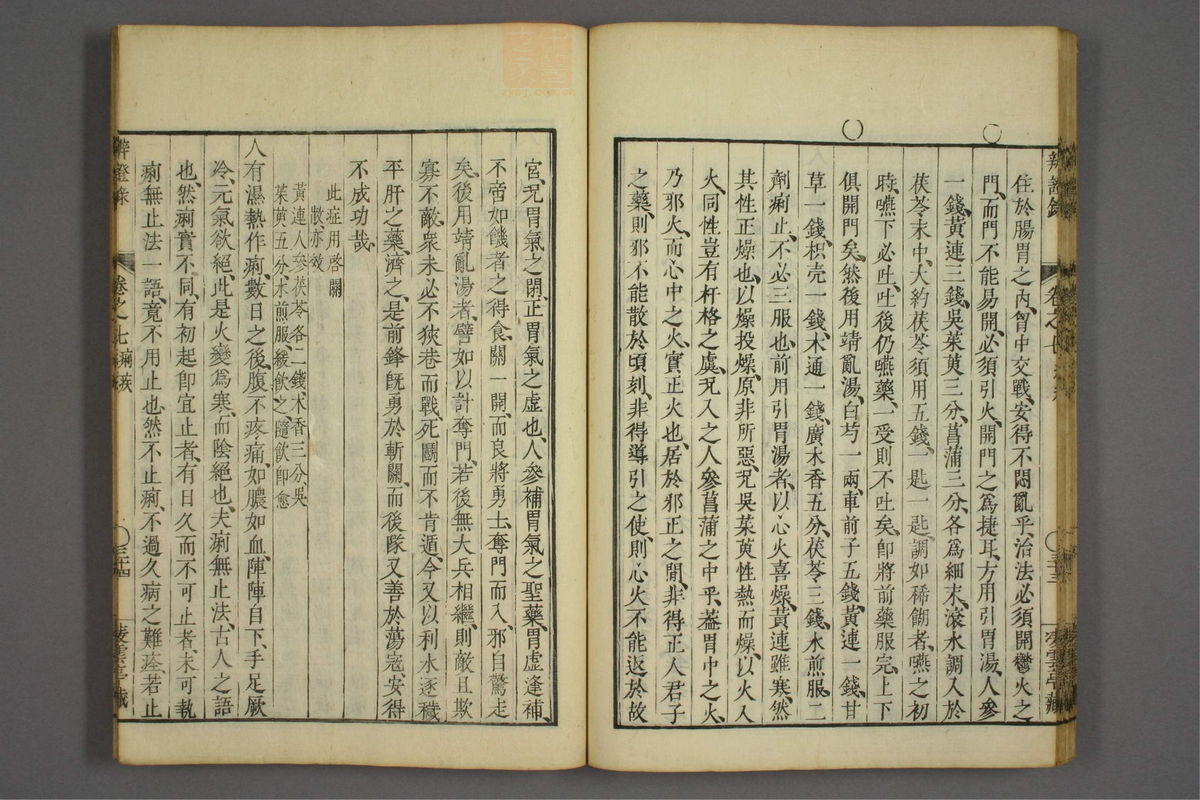 住於腸胃之內、胷中交戰、安得不悶亂乎、治法必須開鬱火之
門、而門不能易開、必須引火、開門之爲捷耳、方用引胃湯、人參
一錢、黃連三錢、吳茱萸三分、菖蒲三分、各爲細末、滾水調入於
茯苓末中、大約茯苓須用五錢、一匙一匙、調如稀餬者、嚥之、初
時、嚥下必吐、吐後仍嚥藥、一受則不吐矣、卽將前藥服完、上下
俱開門矣、然後用靖亂湯、白芍一兩、車前子五錢、黃連一錢、甘
草一錢、枳壳一錢、木通一錢、廣木香五分、茯苓三錢、水煎服、二
劑痢止、不必三服也、前用引胃湯者、以心火喜燥、黃連雖寒、然
其性正燥也、以燥投燥、原非所惡、况吳茱萸性熱而燥、以火入
火、同性豈有杆格之虞、况入之人參菖蒲之中乎、葢胃中之火、
乃邪火、而心中之火、實正火也、居於邪正之間、非得正人君子
之藥、則邪不能散於頃刻、非得導引之使、則心火不能返於故
卷之七
三十三
凌雲亭藏
宮、况胃氣之閉、正胃氣之虛也、人參補胃氣之聖藥、胃虛逢補、
不啻如饑者之得食、關一開、而良將勇士、奪門而入、邪自驚走
矣、後用靖亂湯者、譬如以計奪門、若後無大兵相繼、則敵且欺
寡不敵衆、未必不狹巷而戰、死鬭而不肯遁、今又以利水逐穢
平肝之藥、濟之、是前鋒旣勇於斬關、而後隊又善於蕩宼、安得
不成功哉、
此症用啓關
散亦效
黃連人參茯苓各二錢、木香三分、吳
茱萸五分、水煎服、緩飲之、隨飲卽愈
人有濕熱作痢、數日之後、腹不疼痛、如膿如血、陣陣自下、手足厥
冷、元氣欲絕、此是火變爲寒、而陰絕也、夫痢無止法、古人之語
也、然痢實不同、有初起卽宜止者、有日久而不可止者、未可執
痢無止法一語、竟不用止也、然不止痢、不過久病之難痊、若止
辨證錄
卷之七 痢疾
三十四
凌雲亭藏